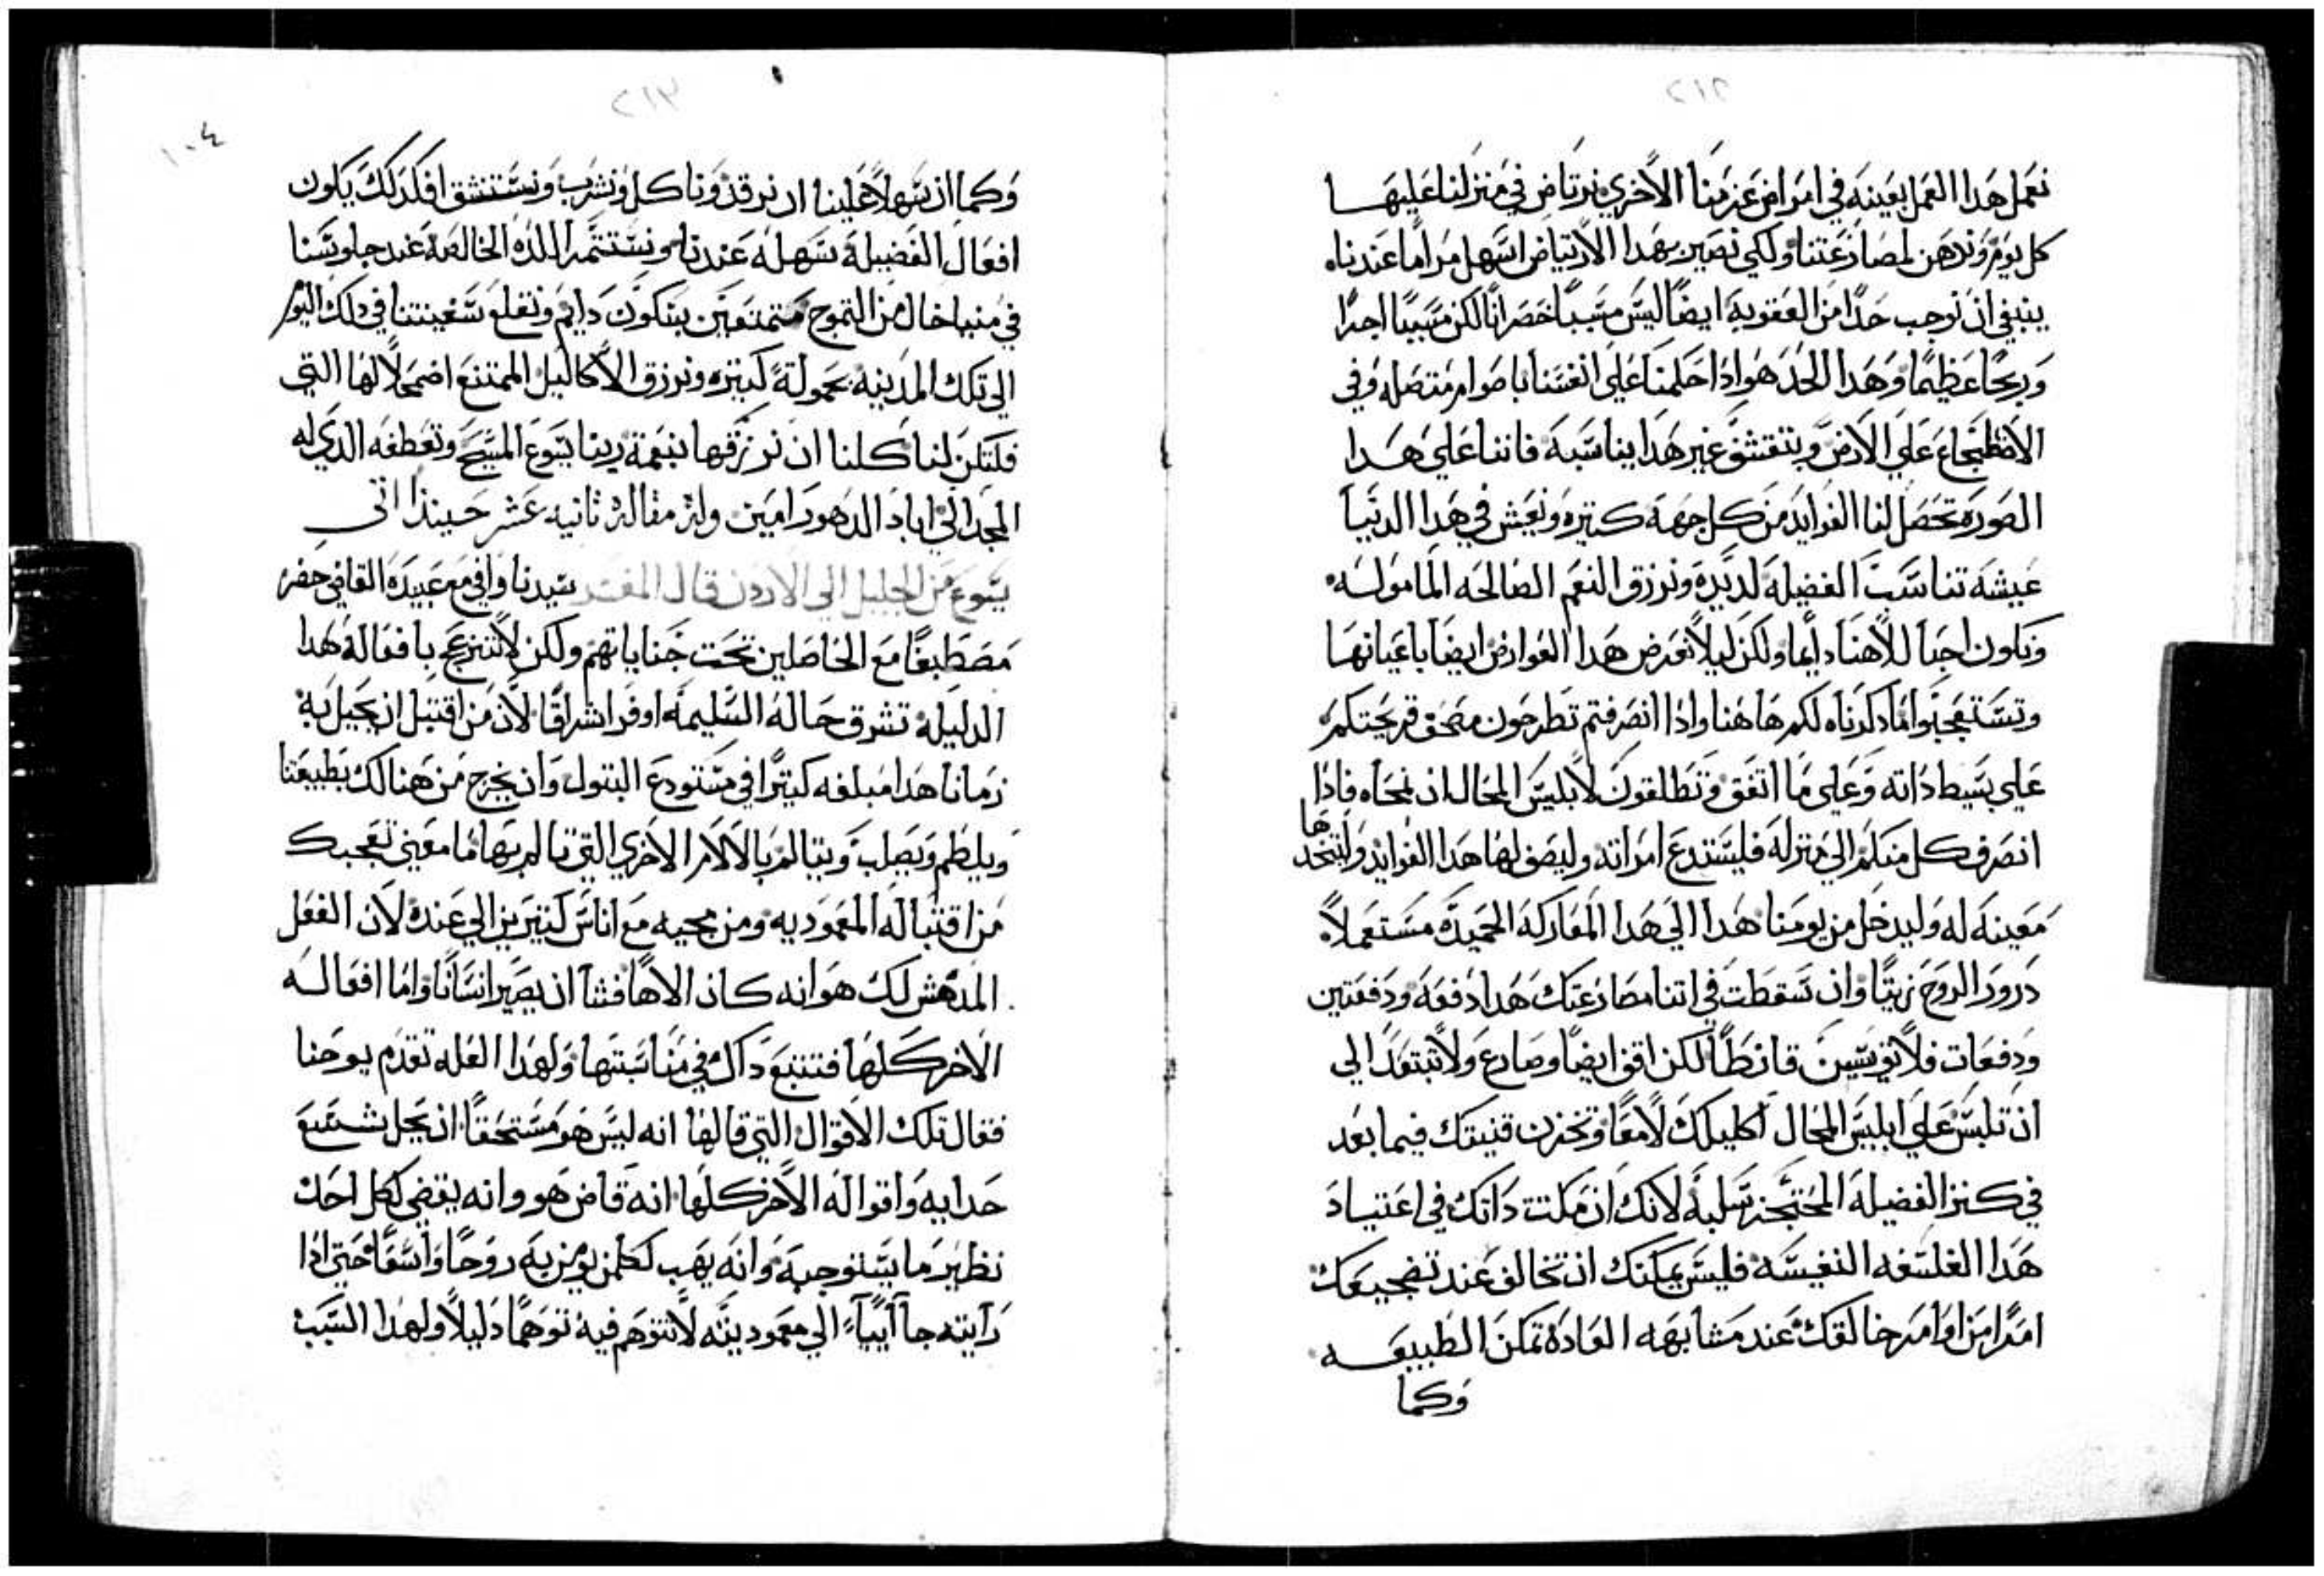 ٢١٢
نعمل هدا العمل بعينه في امراض عزمنا الاخري نرتاض في منزلنا عليها
كل يوم وندهن لمصارعتنا ولكي نصير بهدا الارتياض اسهل مراما عندنا
ينبغي ان نوجب حدا من العقوبة ايضا ليس مسببا خصرانا لكن مسببا اجرا
وربحا عظيما وهدا الحد هو ادا حكمنا علي انفسنا باصوام متصله وفي
الاضطجاع علي الارض وبتقشف غير هدا يناسبه فاننا علي هدا
الصوره تحصل لنا الفوايد من كل جهة كتيره ونعيش في هدا الدنيا
عيشه تناسب الفضيله لديده ونرزق النعم الصالحه المامولسه
ونكون احبا للاهنا دايما ولكن ليلا تعرض هدا العوارض ايضا باعيانها
وتستعجبوا مما دكرناه لكم هاهنا وادا انصرفتم تطرحون مصحف قريحتكم
علي بسيط داته وعلي ما اتفق وتطلقون لابليس المحال ان يمحاه فادا
انصرف كل منكم الي منزله فليستدع امراته وليصف لها هدا الفوايد وليتخدها
معينه له وليدخل من يومنا هدا الي هدا المعاركه الحميده مستعملا
درور الروح زيتا وان سقطت في اتنا مصارعتك هدا دفعه ودفعتين
ودفعات فلا تويسين قانطا لكن اقف ايضا وصارع ولا تبتعد الي
ان تلبس علي ابليس المحال اكليلك لامعا وتخزن قنيتك فيما بعد
في كنز الفضيله المحتجز سلبه لانك ان مكنت داتك في اعتياد
هدا الفلسفه النفيسه فليس يمكنك ان تخالف عند تضجيعك
امرا من اوامر خالقك عند مشابهه العاده تمكن الطبيعه
وكما
٢١٣
١٠٤
وكما ان سهلا علينا ان نرقد وناكل ونشرب ونستنشق فكدلك يكون
افعال الفضيله سهله عندنا ونستتمر اللده الخالصه عند جلوسنا
في مينا خال من التموج متمتعين بسكون دايم ونقلع سفينتنا في دلك اليوم
الي تلك المدينه بحمولة كتيره ونرزق الاكاليل الممتنع اضمحلالها التي
فلتكن لنا كلنا ان نرزقها بنعمة ربنا يسوع المسيح وتعطفه الدي له
المجد الي اباد الدهور امين وله مقاله ثانيه عشر حينيذا اتى
يسوع من الجليل الي الاردن قال المفسر سيدنا وافي مع عبيده القاضي حضر
مصطبغا مع الحاصلين تحت جناياتهم ولكن لا تنزعج بافعاله هدا
الدليله تشرق حاله السليمه اوفر اشراقا لان من اقتبل ان يحبل به
زمانا هدا مبلغه كتيرا في مستودع البتول وان يخرج من هنالك بطبيعتنا
ويلطم ويصلب ويتالم بالالام الاخري التي تالم بها ما معني تعجبك
من اقتباله المعموديه ومن مجيه مع اناس كتيرين الي عنده لان الفعل
المدهش لك هو انه كان الاها فشا ان يصير انسانا واما افعاله
الاخر كلها فتتبع داك في مناسبتها ولهدا العله تقدم يوحنا
فقال تلك الاقوال التي قالها انه ليس هو مستحقا ان يحل شسع
حدايه واقواله الاخر كلها انه قاض هو وانه يقضي لكل احد
نظير ما يستوجبه وانه يهب لكلمن يومن به روحا واسعا حتي ادا
رايته جاآ اتيا الي معموديته لا تتوهم فيه توهما دليلا ولهدا السبب